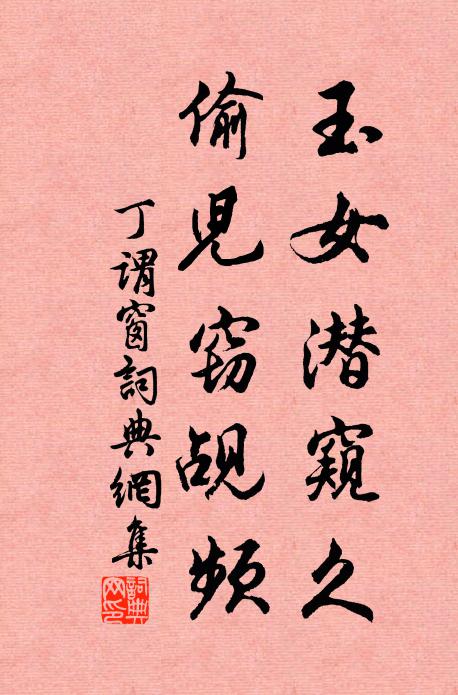 玉女潜窺久
偷兒窃覘頻
丁謂窗詞典網集
詞典网印